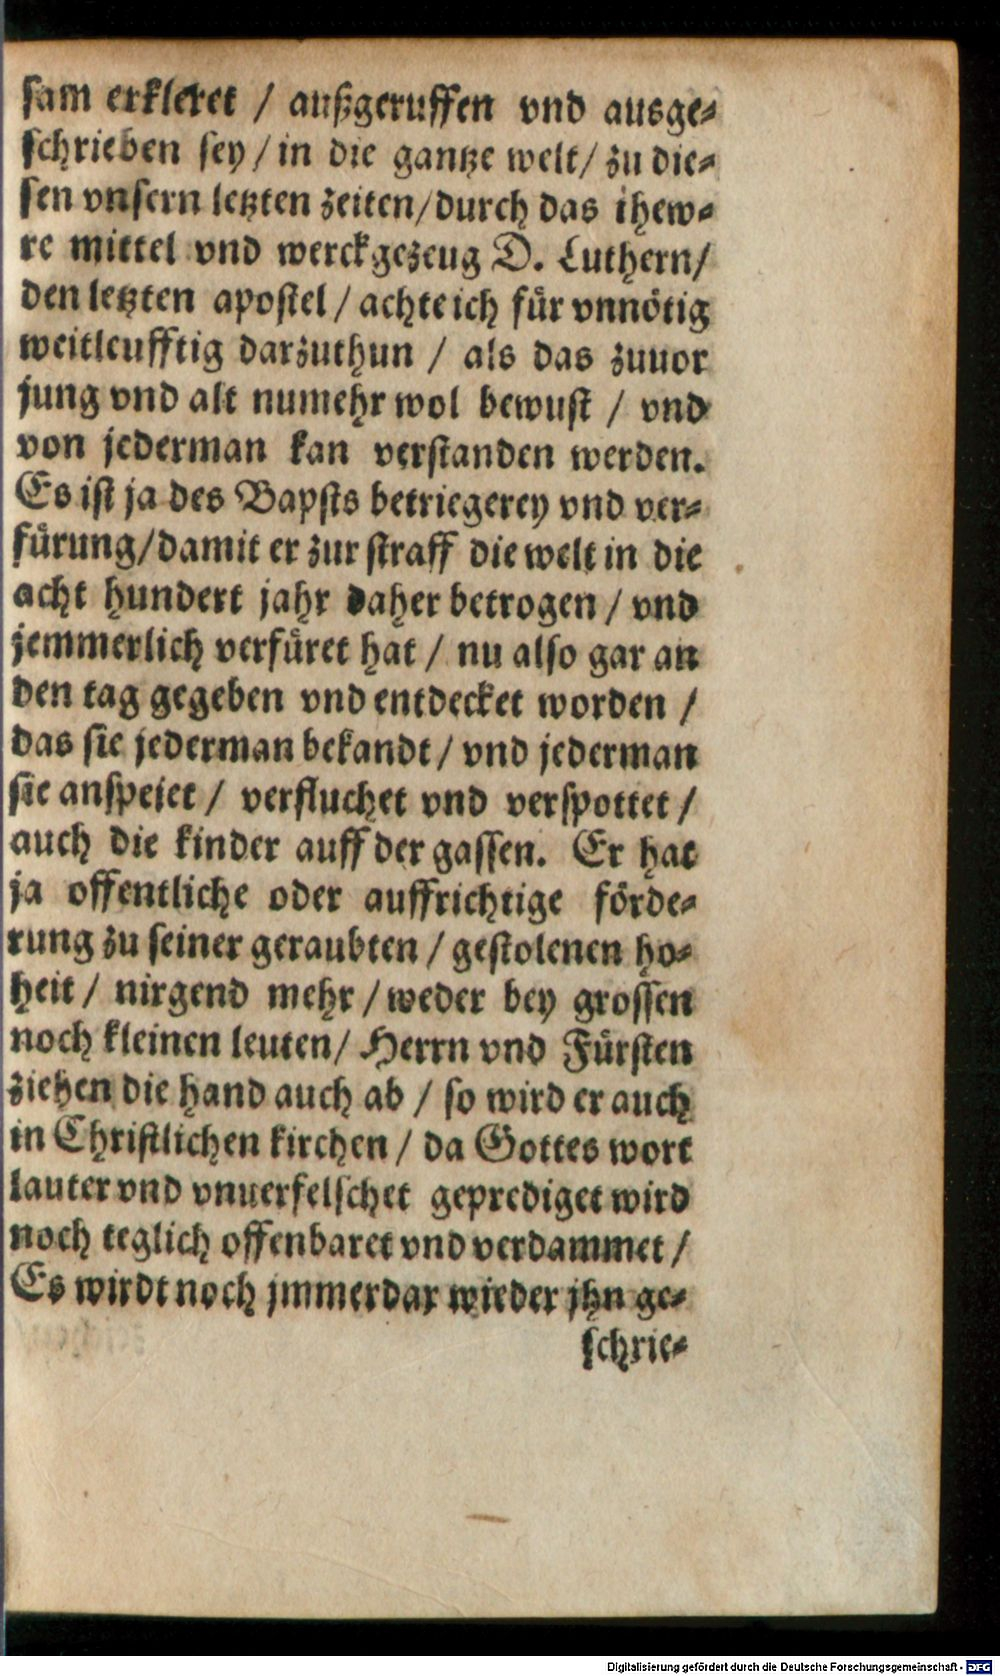 sam erkleret / außgeruffen vnd ausge-
schrieben sey / in die gantze welt / zu die-
sen vnsern letzten zeiten / durch das thew-
re mittel vnd werckgezeug D. Luthern /
den letzten apostel / achte ich für vnnötig
weitleufftig darzuthun / als das zuuor
jung vnd alt numehr wol bewust / vnd
von jederman kan verstanden werden.
Es ist ja des Bapsts betriegerey vnd ver-
fürung / damit er zur straff die welt in die
acht hundert jahr daher betrogen / vnd
jemmerlich verfüret hat / nu also gar an
den tag gegeben vnd entdecket worden /
das sie jederman bekandt / vnd jederman
sie anspejet / verfluchet vnd verspottet /
auch die kinder auff der gassen. Er hat
ja offentliche oder auffrichtige förde-
rung zu seiner geraubten / gestolenen ho-
heit / nirgend mehr / weder bey grossen
noch kleinen leuten / Herrn vnd Fürsten
ziehen die hand auch ab / so wird er auch
in Christlichen kirchen / da Gottes wort
lauter vnd vnuerfelschet geprediget wird
noch teglich offenbaret vnd verdammet /
Es wirdt noch jmmerdar wieder jhn ge-
schrie-
Digitalisierung gefördert durch die Deutsche Forschungsgemeinschaft - DFG